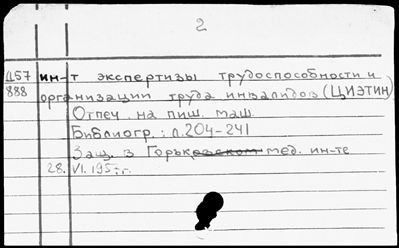 2
Д57 ин-т экспертизы трудоспособности и
888 организации труда инвалидов (ЦИЭТИН)
Отпеч. на пиш. маш.
Библиогр.: л.204-241
Защ. в Горьковском мед. ин-те
28. VI. 195 г.